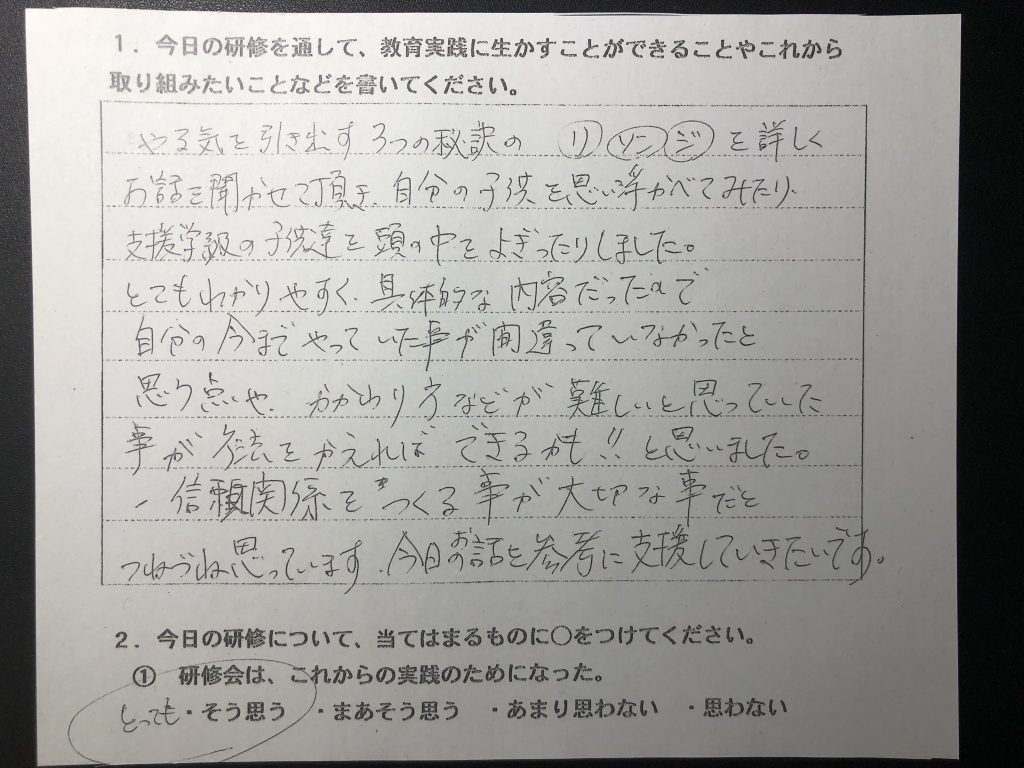 1．今日の研修を通して、教育実践に生かすことができることやこれから
取り組みたいことなどを書いてください。
やる気を引き出す3つの秘訣の リ ソン ジ を詳しく
お話を聞かせて頂き、自分の子供を思い浮かべてみたり、
支援学級の子供達を頭の中をよぎったりしました。
とてもわかりやすく、具体的な内容だったので
自分の今までやっていた事が間違っていなかったと
思う点や、かかわり方などが難しいと思っていた
事が方法をかえればできるかも!!と思いました。
・信頼関係をつくる事が大切な事だと
つねづね思っています。今日のお話を参考に支援していきたいです。
2．今日の研修について、当てはまるものに○をつけてください。
① 研修会は、これからの実践のためになった。
とっても・そう思う ・まあそう思う ・あまり思わない ・思わない